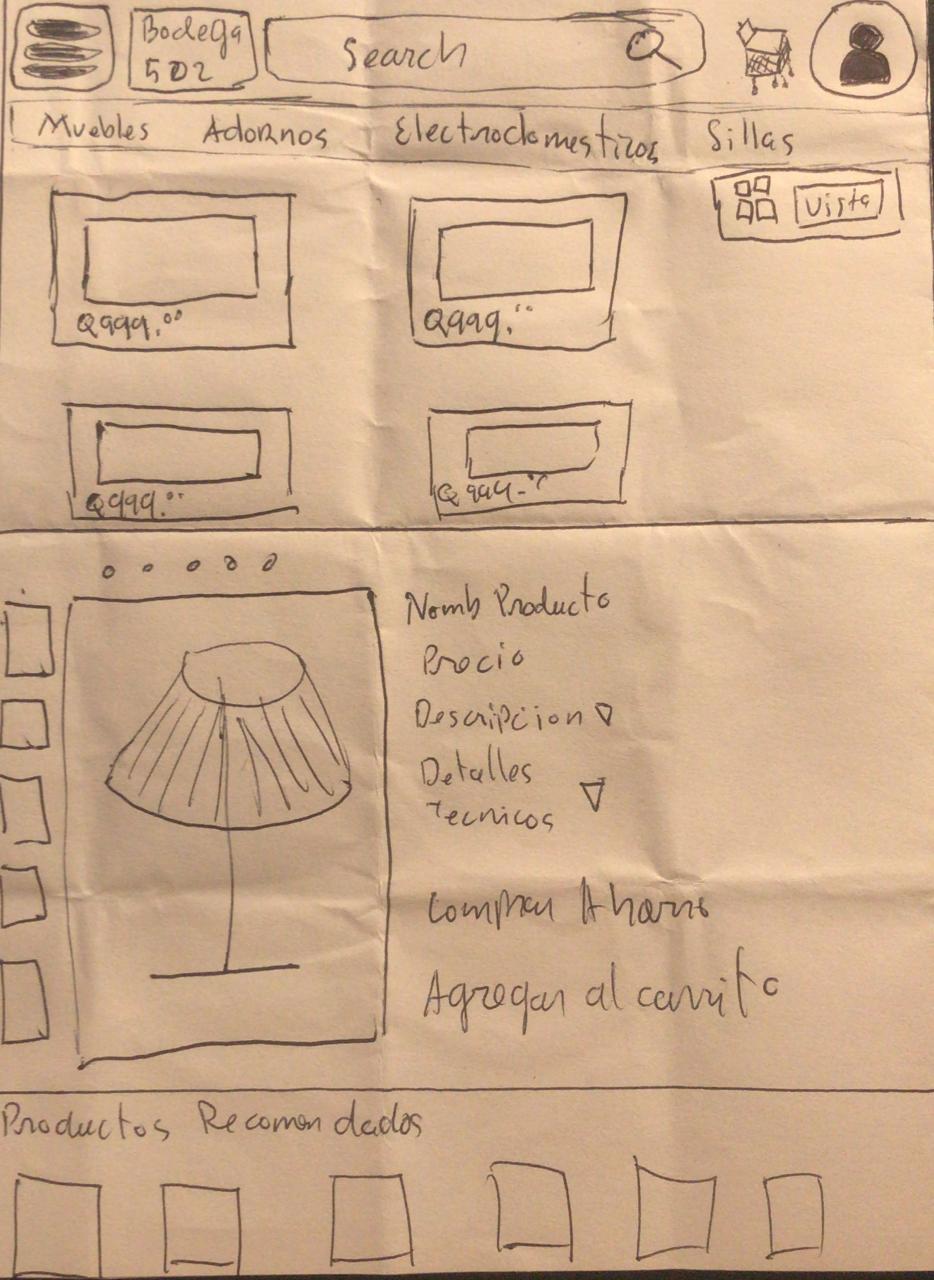 Bodega
502
Search
Muebles Adornos Electrodomesticos Sillas
Vista
Q999.00
Q999.00
Q999.00
Q999.00
Nomb Producto
Precio
Descripcion
Detalles
Tecnicos
Comprar Ahorra
Agregar al carrito
Productos Recomendados